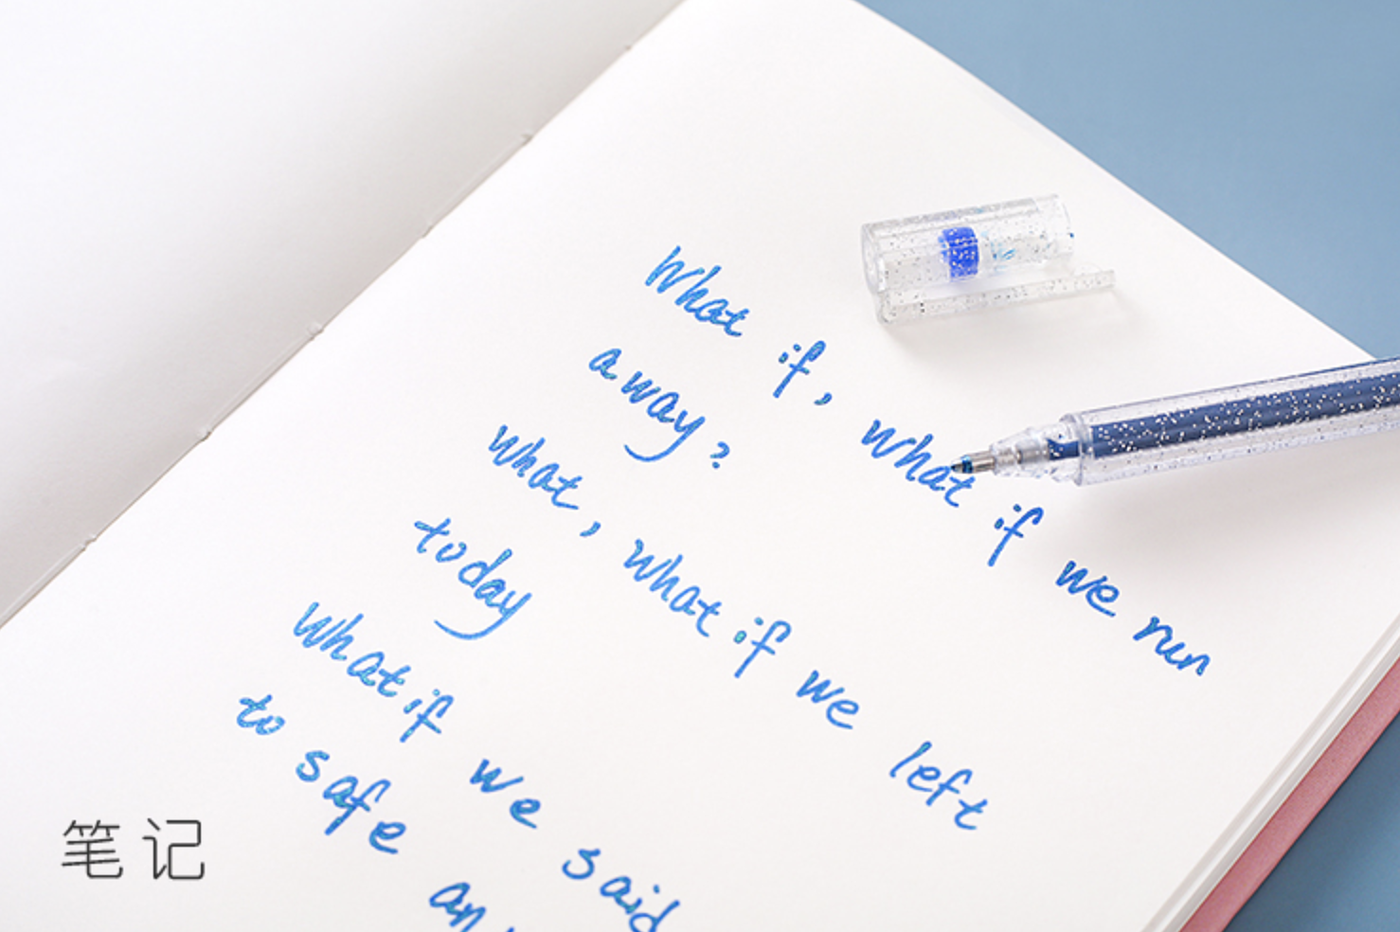 What if, what if we run
away?
what, what if we left
today
what if we said
to safe an
笔记